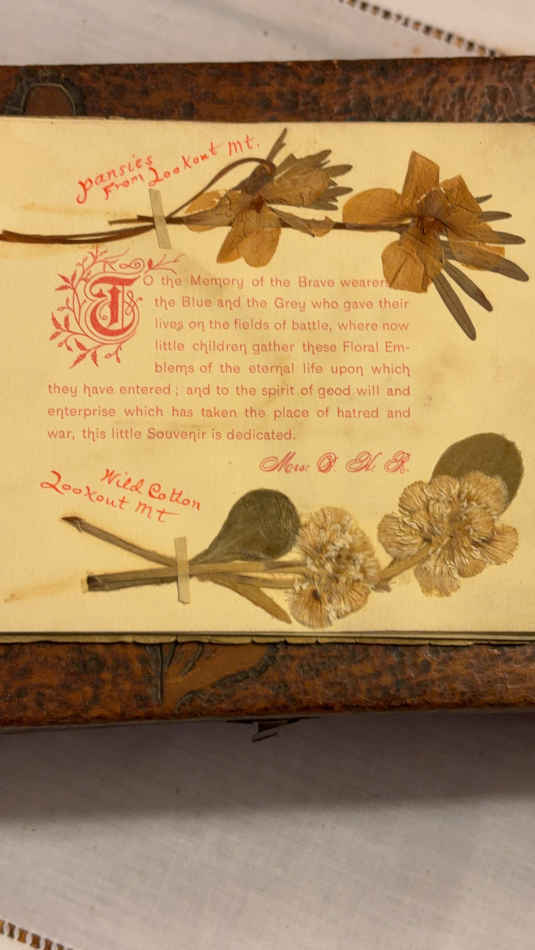 pansies
From Lookout Mt.
TO the Memory of the Brave wearers
the Blue and the Grey who gave their
lives on the fields of battle, where now
little children gather these Floral Em-
blems of the eternal life upon which
they have entered; and to the spirit of good will and
enterprise which has taken the place of hatred and
war, this little Souvenir is dedicated.
Mrs.
Wild Cotton
Lookout Mt